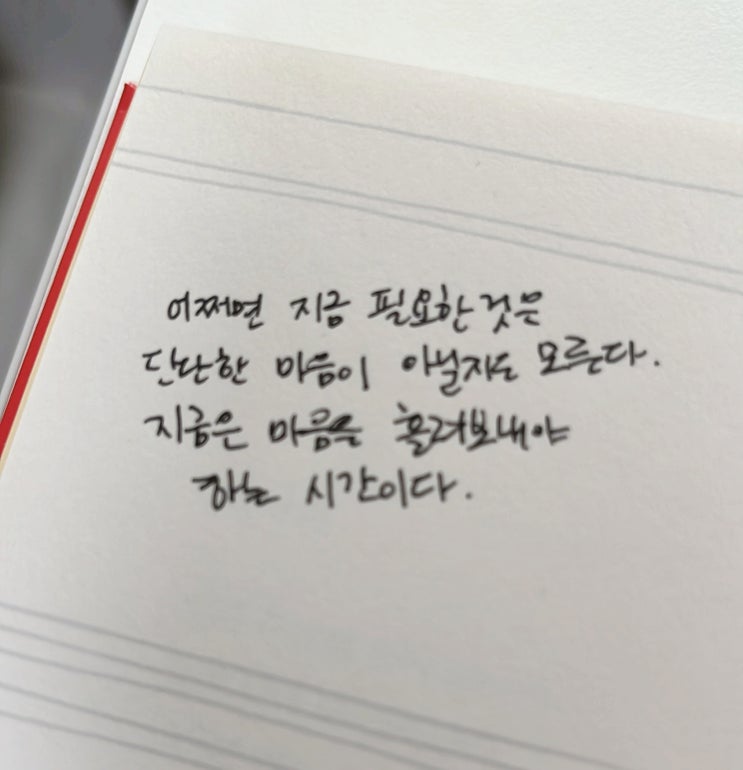 어쩌면 지금 필요한 것은
단단한 마음이 아닐지도 모른다.
지금은 마음을 흘려보내야
하는 시간이다.